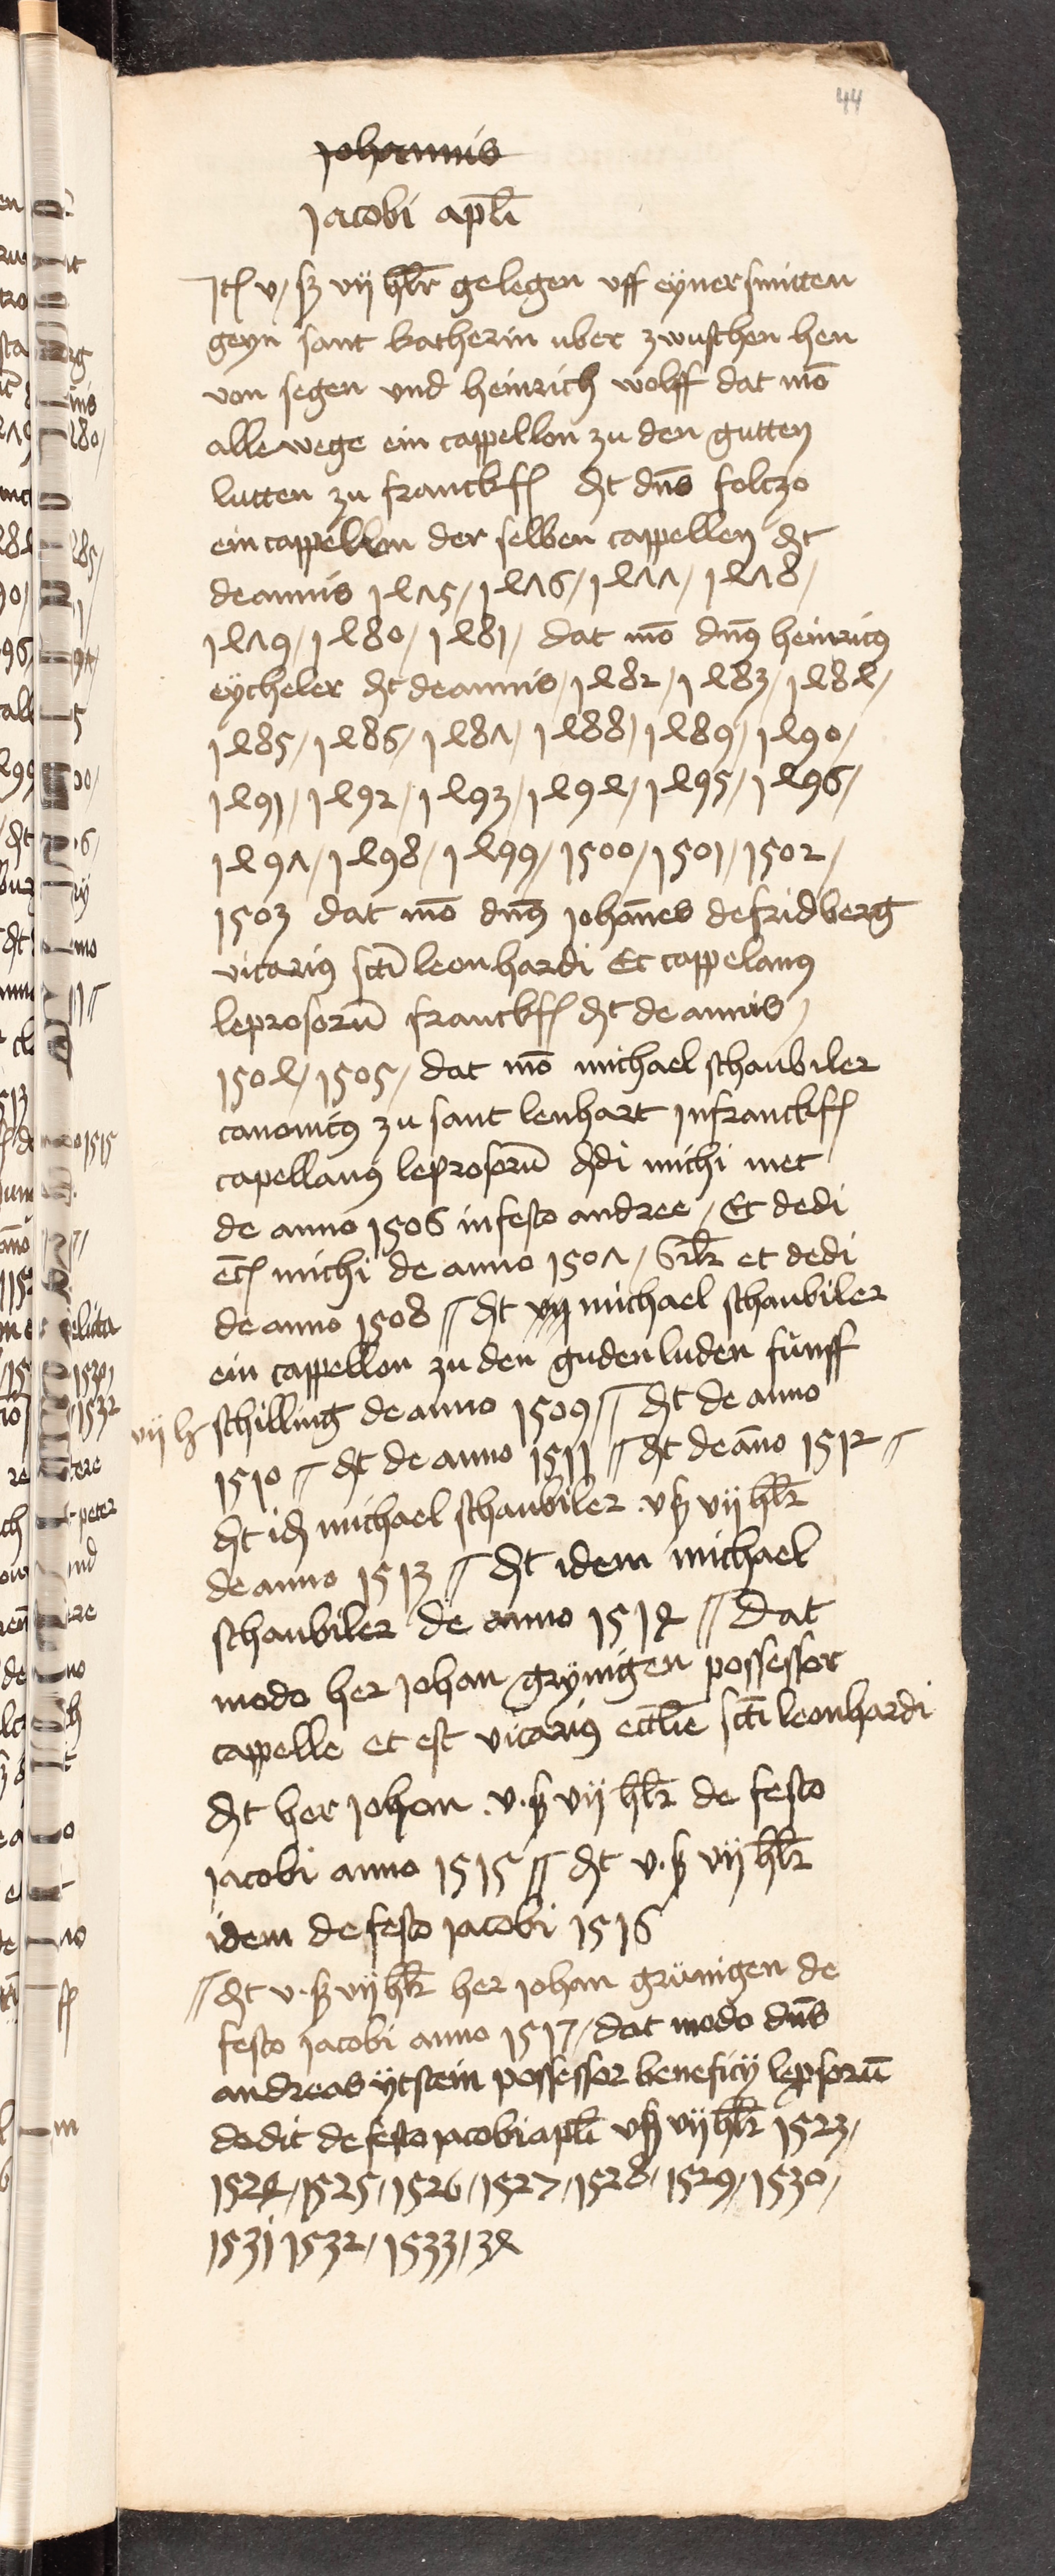 44
Johannis
Jacobi apli
Jt v ß vij hlr gelegen vff eyner smitten
geyn sant katherin uber zwuschen hen
von segen vnd heinrich wolff dat mo
alle wege ein cappellon zu den gutten
lutten zu franckf dt dns foltzo
ein cappellon der selben cappellen dt
de annis 1475 / 1476 / 1477 / 1478 /
1479 / 1480 / 1481 / dat mo dns heinricus
eycheler dt de annis / 1482 / 1483 / 1484 /
1485 / 1486 / 1487 / 1488 / 1489 / 1490 /
1491 / 1492 / 1493 / 1494 / 1495 / 1496 /
1497 / 1498 / 1499 / 1500 / 1501 / 1502 /
1503 dat mo dns johanes de fridberg
vicarius scti leonhardi Et cappelanus
leprosoru franckf dt de annis /
1504 / 1505 / dat mo michael schaubiler
canonicus zu sant lenhart in franckf
capellanus leprosoru ddi michi met
de anno 1506 in festo andree / Et dedi
michi de anno 1507 / et dedi
de anno 1508 // dt michael schaubiler
ein cappellon zu den guden luden funff
vij h schilling de anno 1509 // dt de anno
1510 // dt de anno 1511 // dt de ano 1512 //
dt id michael schaubiler . v ß vij hlr
de anno 1513 // dt idem michael
schaubiler de anno 1514 // dat
modo her johan grynigen possessor
cappelle et est vicarius ecclie scti leonhardi
dt her johan . v . ß vij hlr de festo
jacobi anno 1515 // dt v . ß vij hlr
idem de festo jacobi 1516
// dt v . ß vij hlr her johan grünigen de
festo jacobi anno 1517 / dat modo dns
andreas ytstein possessor beneficij lepsoru
dedit de festo jacobi apli v ß vij hlr 1523 /
1524 / 1525 / 1526 / 1527 / 1528 / 1529 / 1530 /
1531 1532 / 1533 / 34